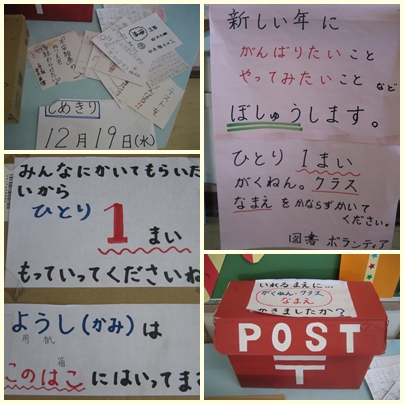 しめきり
12月19日(水)
新しい年に
がんばりたいこと
やってみたいこと など
ぼしゅうします。
ひとり 1まい
がくねん。クラス
なまえ をかならずかいて
ください。
図書 ボランティア
みんなにかいてもらいた
いから
ひとり 1 まい
もっていってくださいね
ようし(かみ)は
用紙
箱
このはこ にはいってます
いれるまえに…
がくねん・クラス
なまえ
かきましたか?
POST
〒